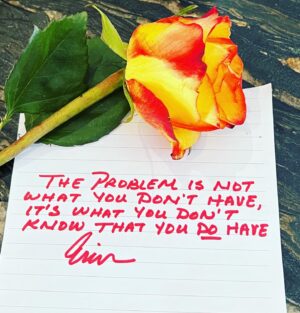 THE PROBLEM IS NOT
WHAT YOU DON'T HAVE,
IT'S WHAT YOU DON'T
KNOW THAT YOU DO HAVE